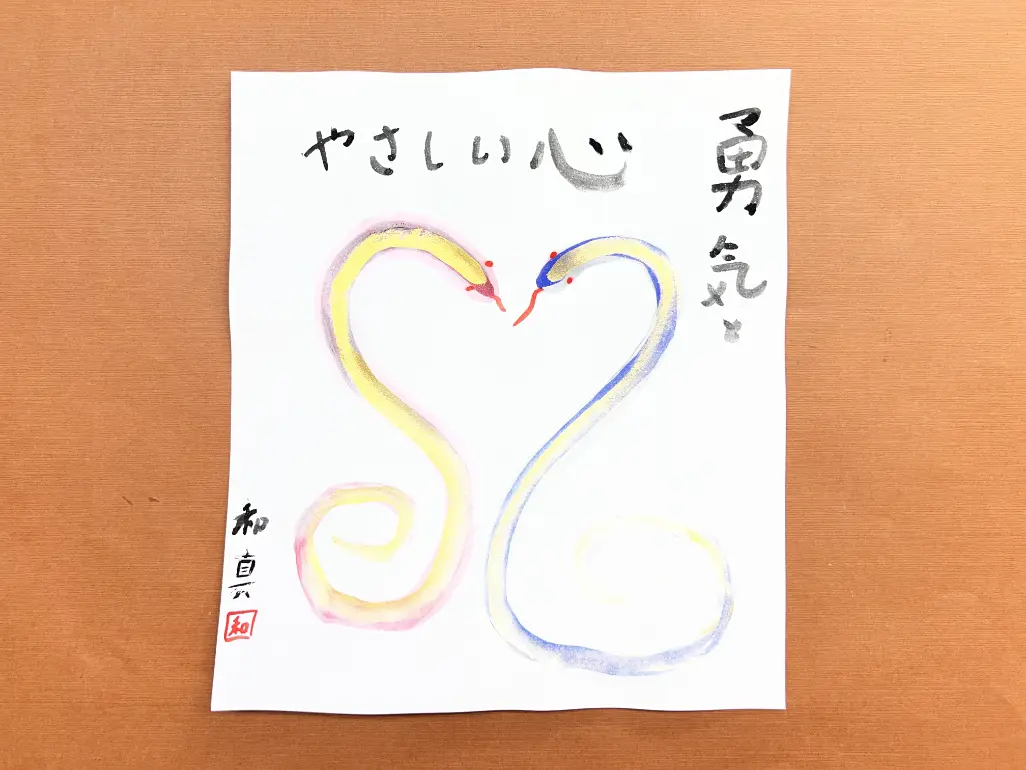 勇気と
やさしい心
和真
和